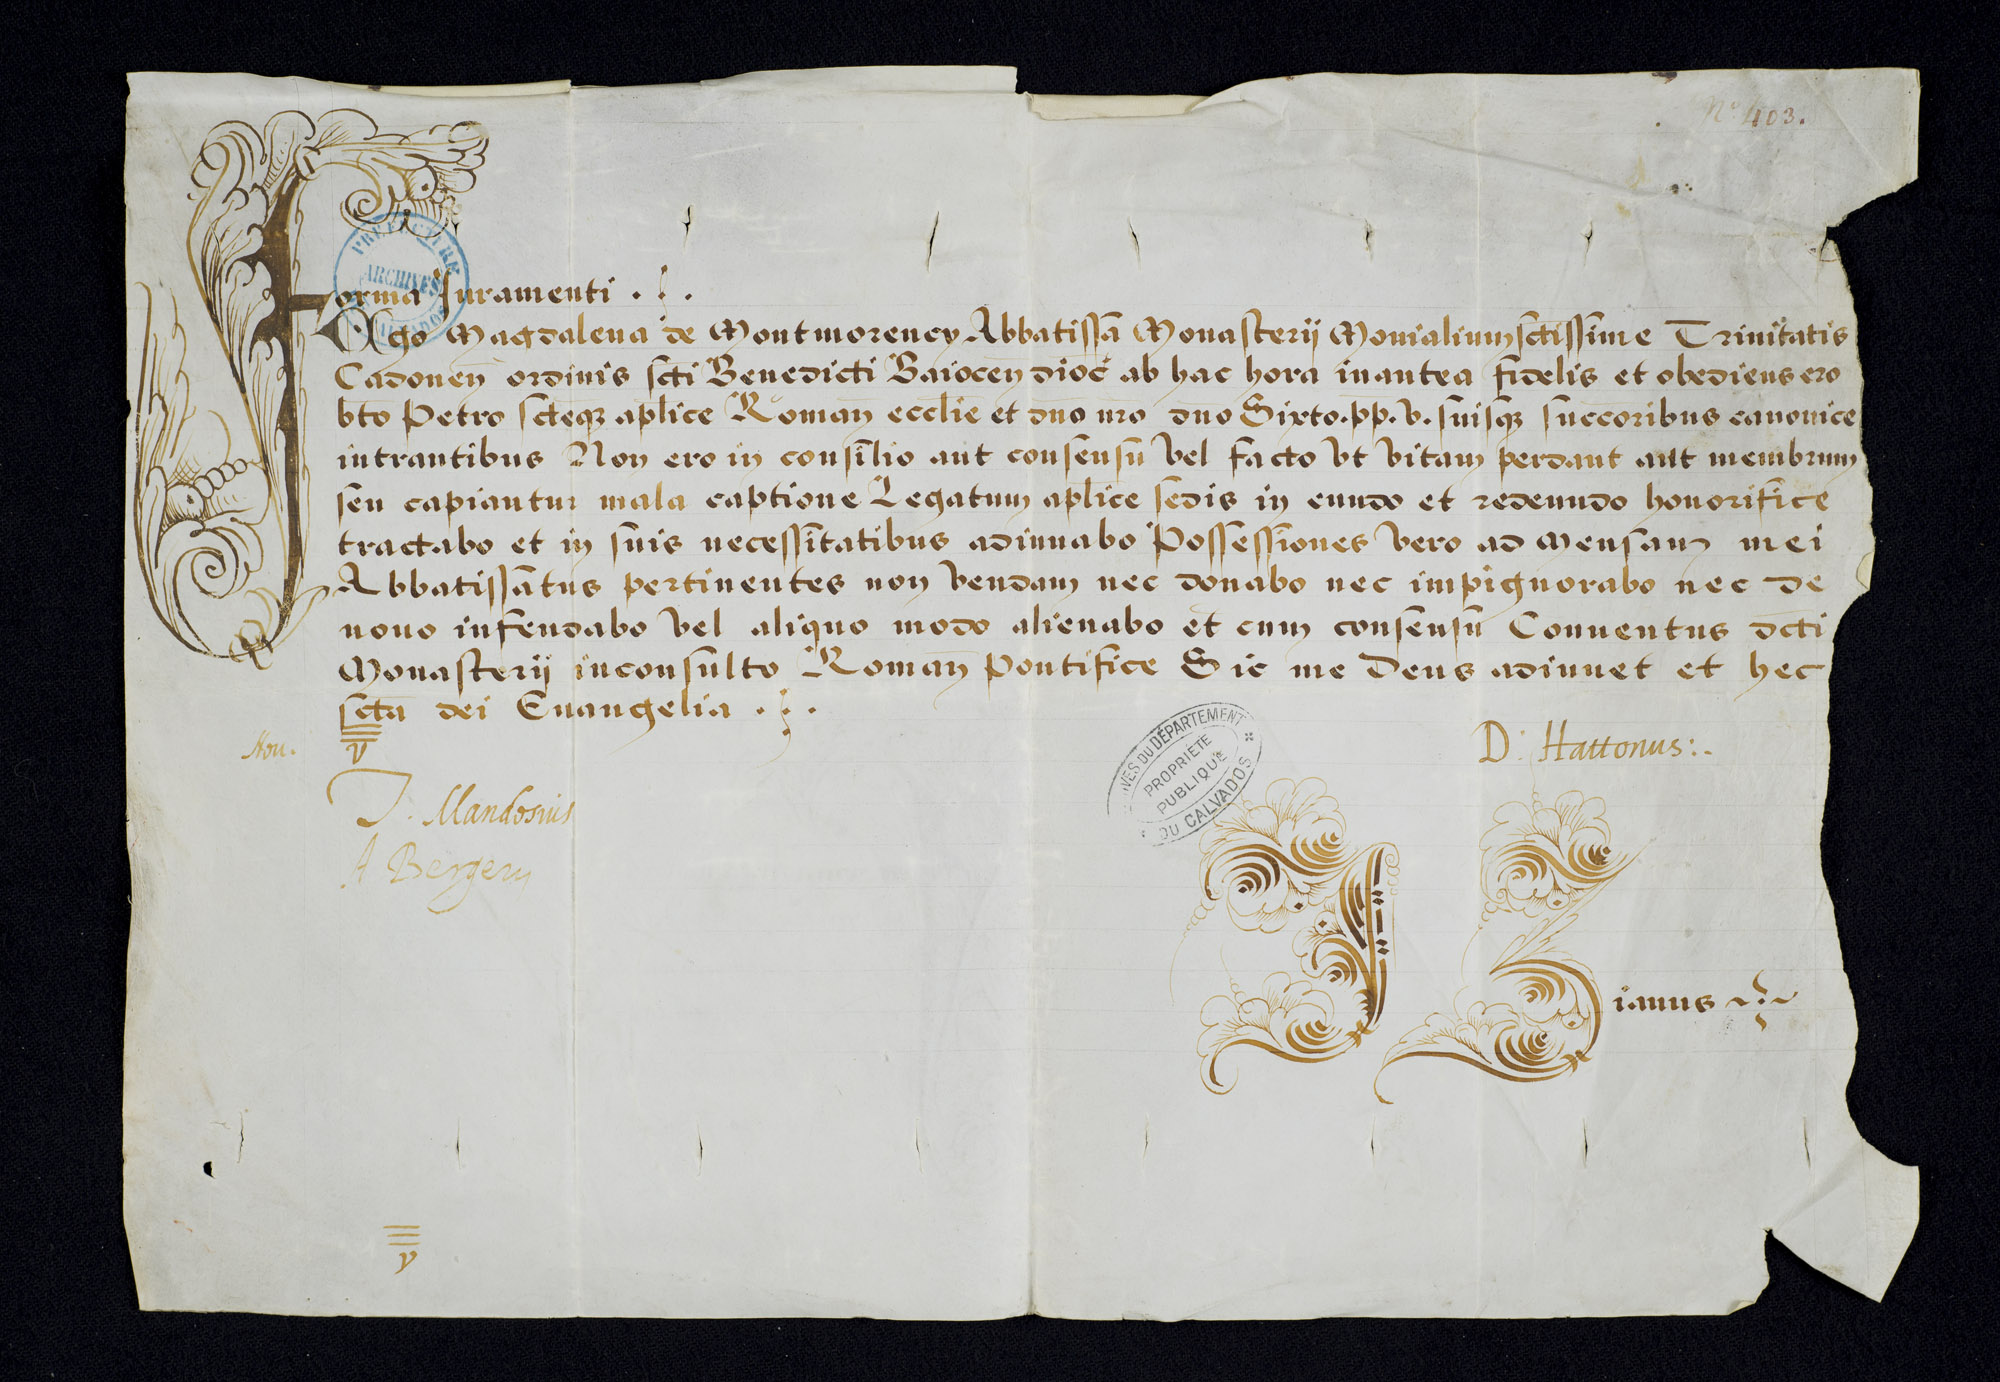 Nº 403.
Forma Iuramenti . ⁝ .
Ego Magdalena de Montmorency Abbatissã Monasterij Monialium sctissime Trinitatis
Cadoneñ ordinis scti Benedicti Baioceñ dioc ab hac hora inantea fidelis et obediens ero
bto Petro scteq aplice Romañ ecclie et dno nro dno Sixto.pp.v. suisq succoribus canonice
intrantibus Non ero in consilio aut consensu vel facto vt vitam perdant aut membrum
seu capiantur mala captione Legatum aplice sedis in eundo et redeundo honorifice
tractabo et in suis necessitatibus adiuuabo Possessiones vero ad Mensam mei
Abbatissatus pertinentes non vendam nec donabo nec impignorabo nec de
nouo infeudabo vel aliquo modo alienabo et cum consensu Conuentus dcti
Monasterij inconsulto Romañ Pontifice Sic me Deus adiuuet et hec
scta dei Euangelia . ⁝ .
D. Hattonus:.
Nou. V
J. Mandosius
A Bergery
ianus
y
PREFECTURE
ARCHIVES
CALVADOS
ARCHIVES DU DÉPARTEMENT
PROPRIÉTÉ
PUBLIQUE
DU CALVADOS